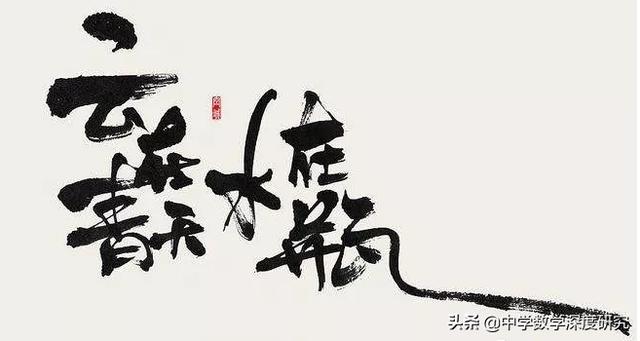 云在青天水在瓶
头条 @中学数学深度研究